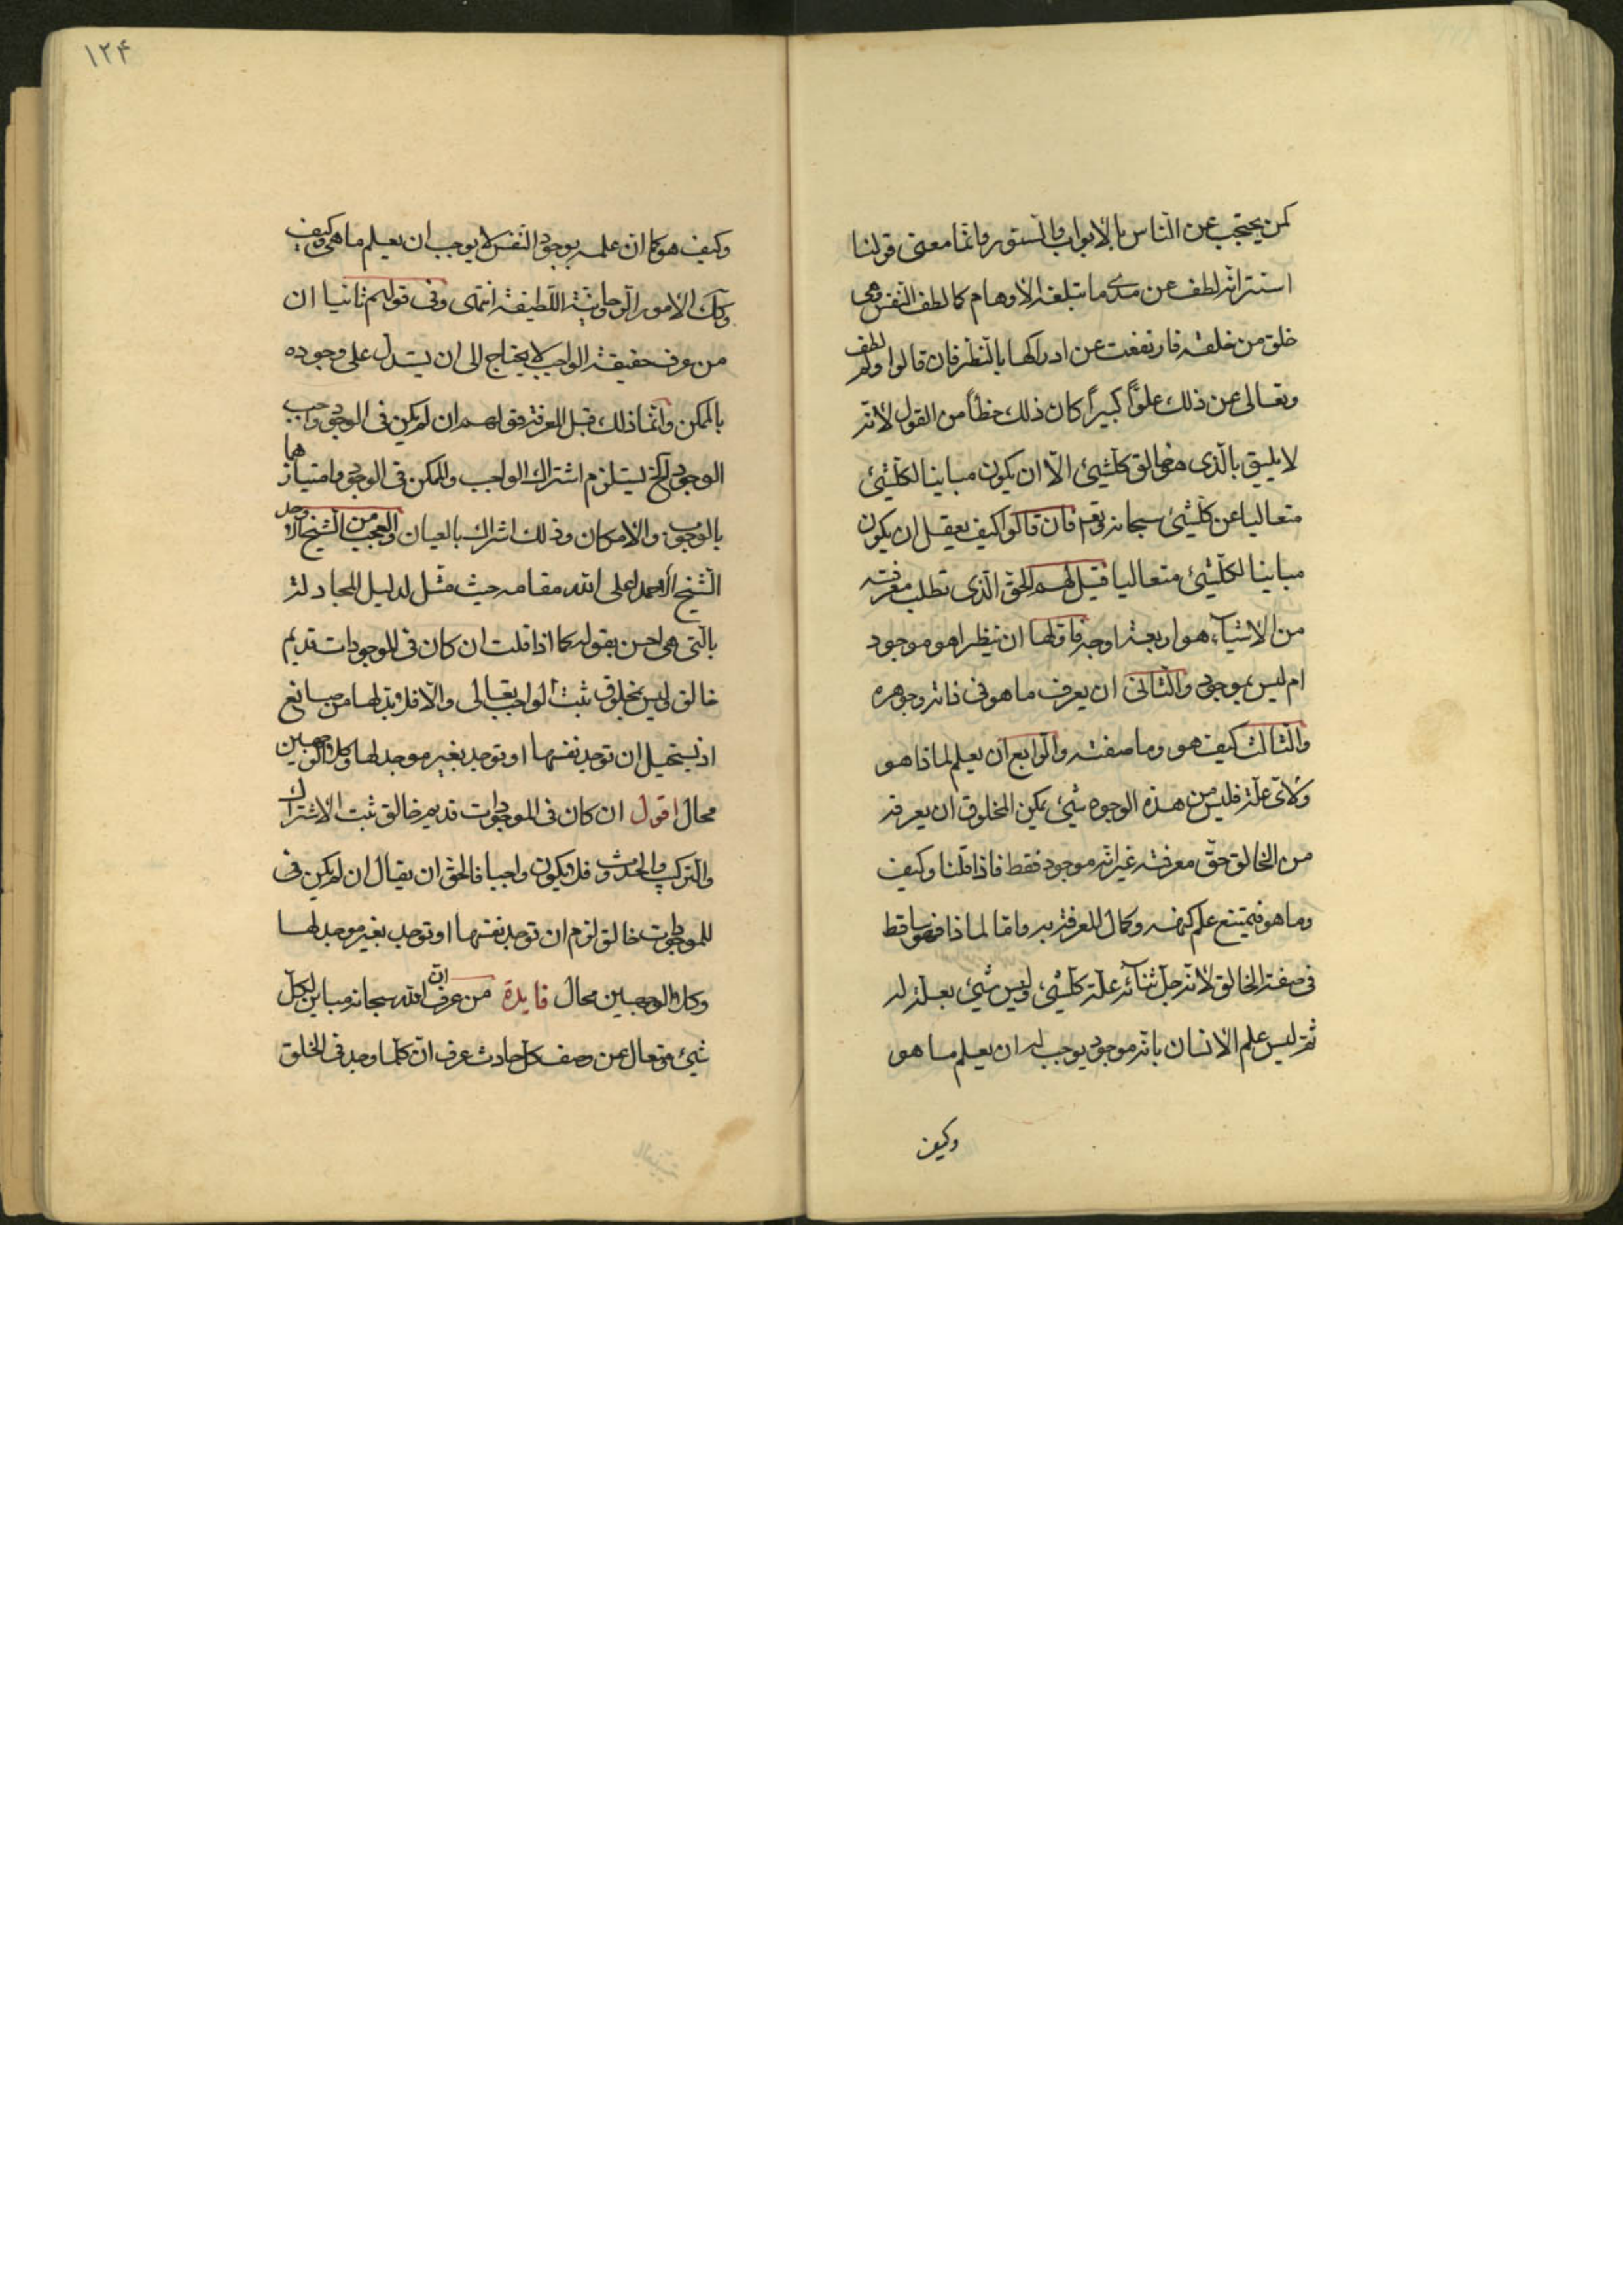 كمن يحتجب عن الناس بالأبواب والستور وانما معنى قولنا
استتر انه لطف عن مدى ما تبلغه الأوهام كما لطف النفس وهي
خلق من خلقه فارتفعت عن ادراكها بالنظر فان قالوا ولم لطف
وتعالى عن ذلك علوّاً كبيراً كان ذلك خطأ من القول لأنه
لا يليق بالذى هو خالق كلشيئ الّا ان يكون مباينا لكلشيئ
متعاليا عن كلشيئ سبحانه وتعم فان قالوا كيف يعقل ان يكون
مباينا لكلشيئ متعاليا قيل لهم الحق الّذى تطلب معرفته
من الأشياء هو اربعة اوجه فاولها ان ينظر اهو موجود
ام ليس بموجود والثانى ان يعرف ما هو فى ذاته وجوهره
والثالث كيف هو وما صفته والرابع ان يعلم لما ذا هو
ولأى علة فليس من هذه الوجوه شيئ يمكن المخلوق ان يعرفه
من الخالق حقّ معرفته غير انه موجود فقط فاذا قلنا وكيف
وما هو فيمتنع علم كنهه وكمال المعرفة به واما لما ذا هو فساقط
فى صفة الخالق لأنه جل ثنائه علة كلشيئ وليس شيئ بعلة له
ثم ليس علم الأنسان بانه موجود يوجب له ان يعلم ما هو
وكيف
١٢۴
وكيف هو كما ان علمه بوجود النفس لا يوجب ان يعلم ما هى وكيف هي
وكك الأمور الروحانية اللطيفة انتهى وفى قولهم ثانيا ان
من عرف حقيقة الواجب لا يحتاج الى ان يستدل على وجوده
بالممكن وانما ذلك قبل المعرفة فقولهم ان لم يكن فى الوجود واجب
الوجود الخ يستلزم اشتراك الواجب والممكن فى الوجود وامتيازهما
بالوجوب والأمكان وذلك اشراك بالعيان والعجب من الشيخ الأوحد
الشيخ احمد اعلى الله مقامه حيث مثل لدليل المجادلة
بالتى هى احسن بقوله كما اذا قلت ان كان فى الموجودات قديم
خالق ليس بمخلوق ثبت الواجب تعالى والّا فلا بد لها من صانع
اذ يستحيل ان توجد نفسها او توجد بغير موجد لها وكلا الوجهين
محال اقول ان كان فى الموجودات قديم خالق ثبت الأشتراك
والتركيب والحدوث فلا يكون واجبا فالحق ان يقال ان لم يكن فى
الموجودات خالق لزم ان توجد نفسها او توجد بغير موجد لها
وكلا الوجهين محال فايدة من عرف انّ الله سبحانه مباين لكل
شيئ ومتعال عن وصف كل حادث عرف انّ كلما وجد فى الخلق